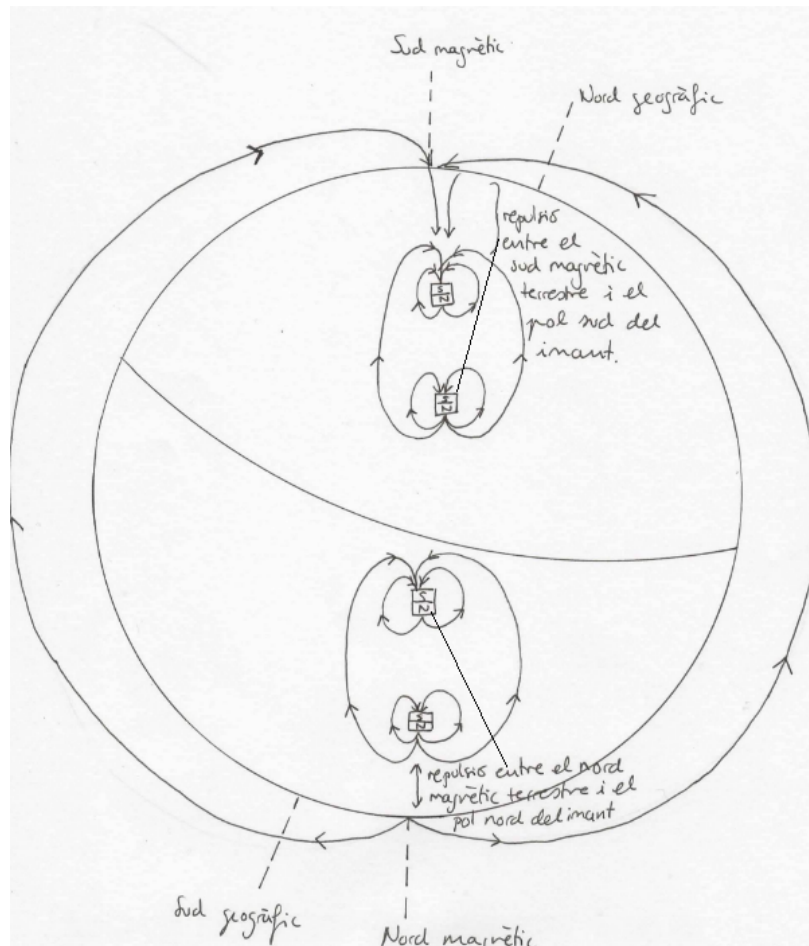 Sud magnètic
Nord geogràfic
repulsió
entre el
sud magnètic
terrestre i el
pol sud del
imant.
S
N
S
N
S
N
S
N
repulsió entre el nord
magnètic terrestre i el
pol nord del imant
Sud geogràfic
Nord magnètic